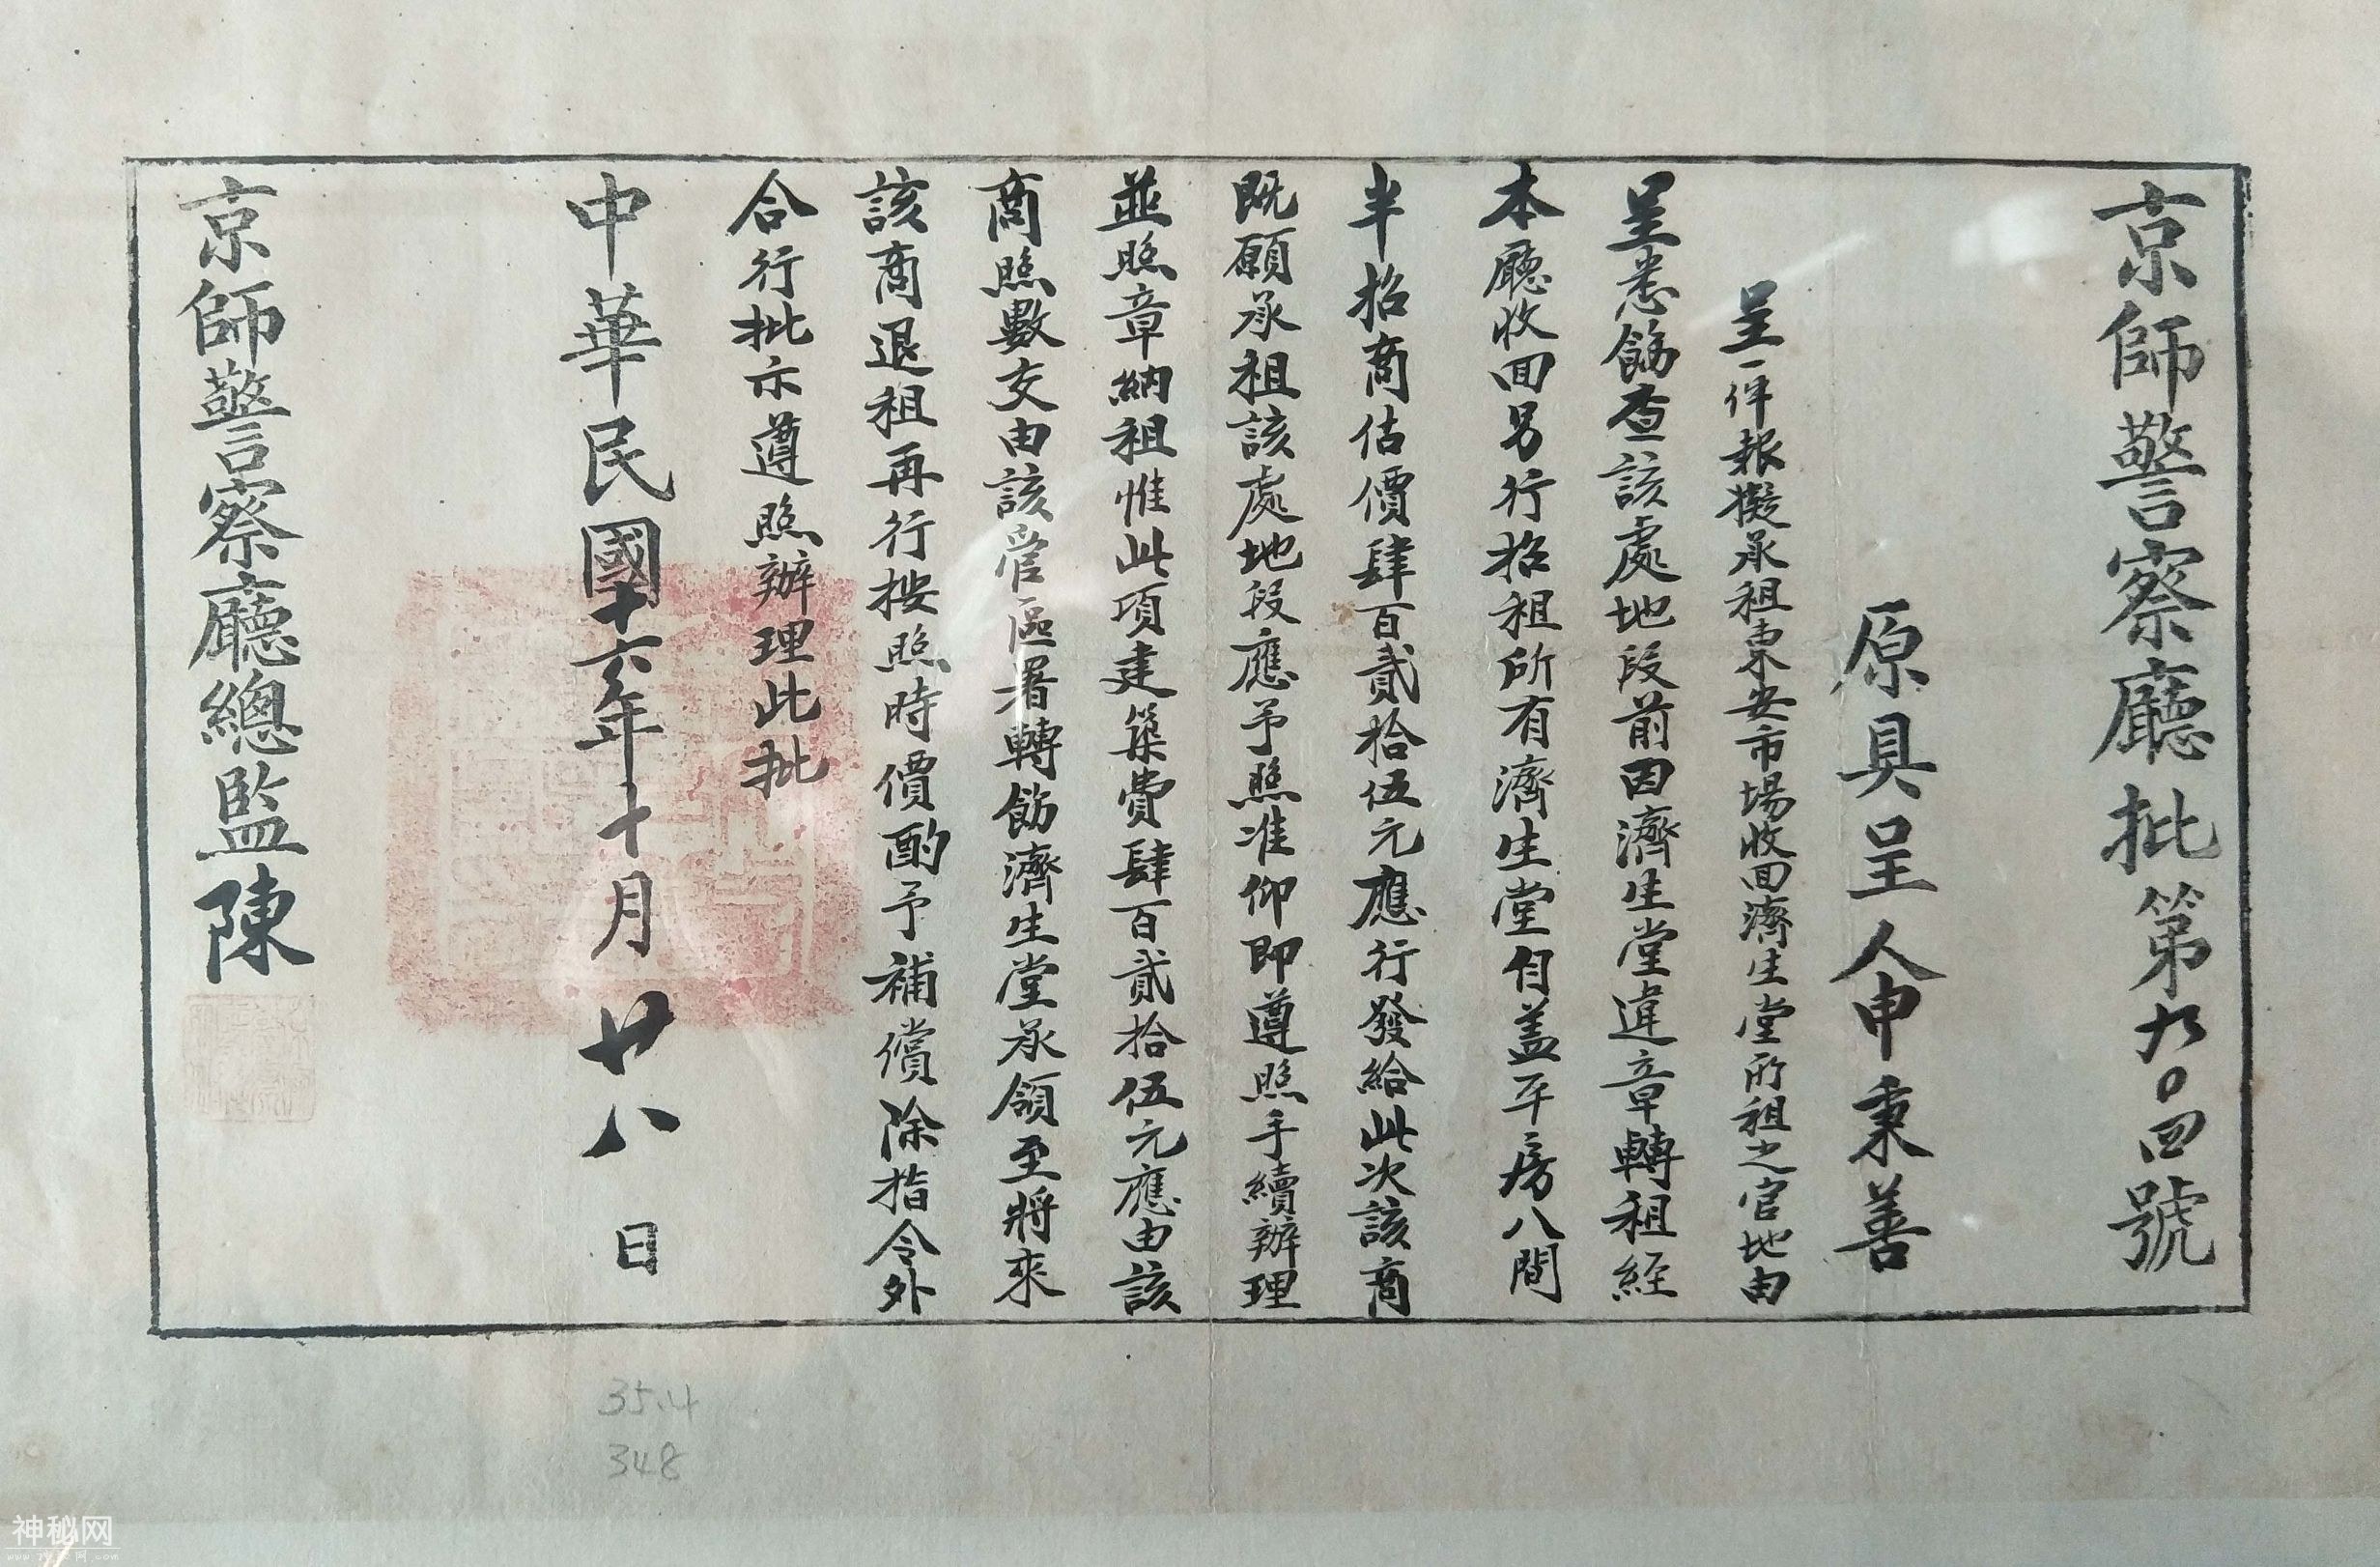 京師警察廳批第九〇四號
原具呈人申秉善
呈一件報擬承租東安市場收回濟生堂所租之官地由
呈悉飭查該處地段前因濟生堂違章轉租經
本廳收回另行招租所有濟生堂自盖平房八間
半招商估價肆百貳拾伍元應行發給此次該商
既願承租該處地段應予照准仰即遵照手續辦理
並照章納租惟此項建築費肆百貳拾伍元應由該
商照數交由該管區署轉飭濟生堂承領至將來
該商退租再行按照時價酌予補償除指令外
合行批示遵照辦理此批
中華民國十六年十月廿八日
京師警察廳總監陳
35.4
348
神秘网